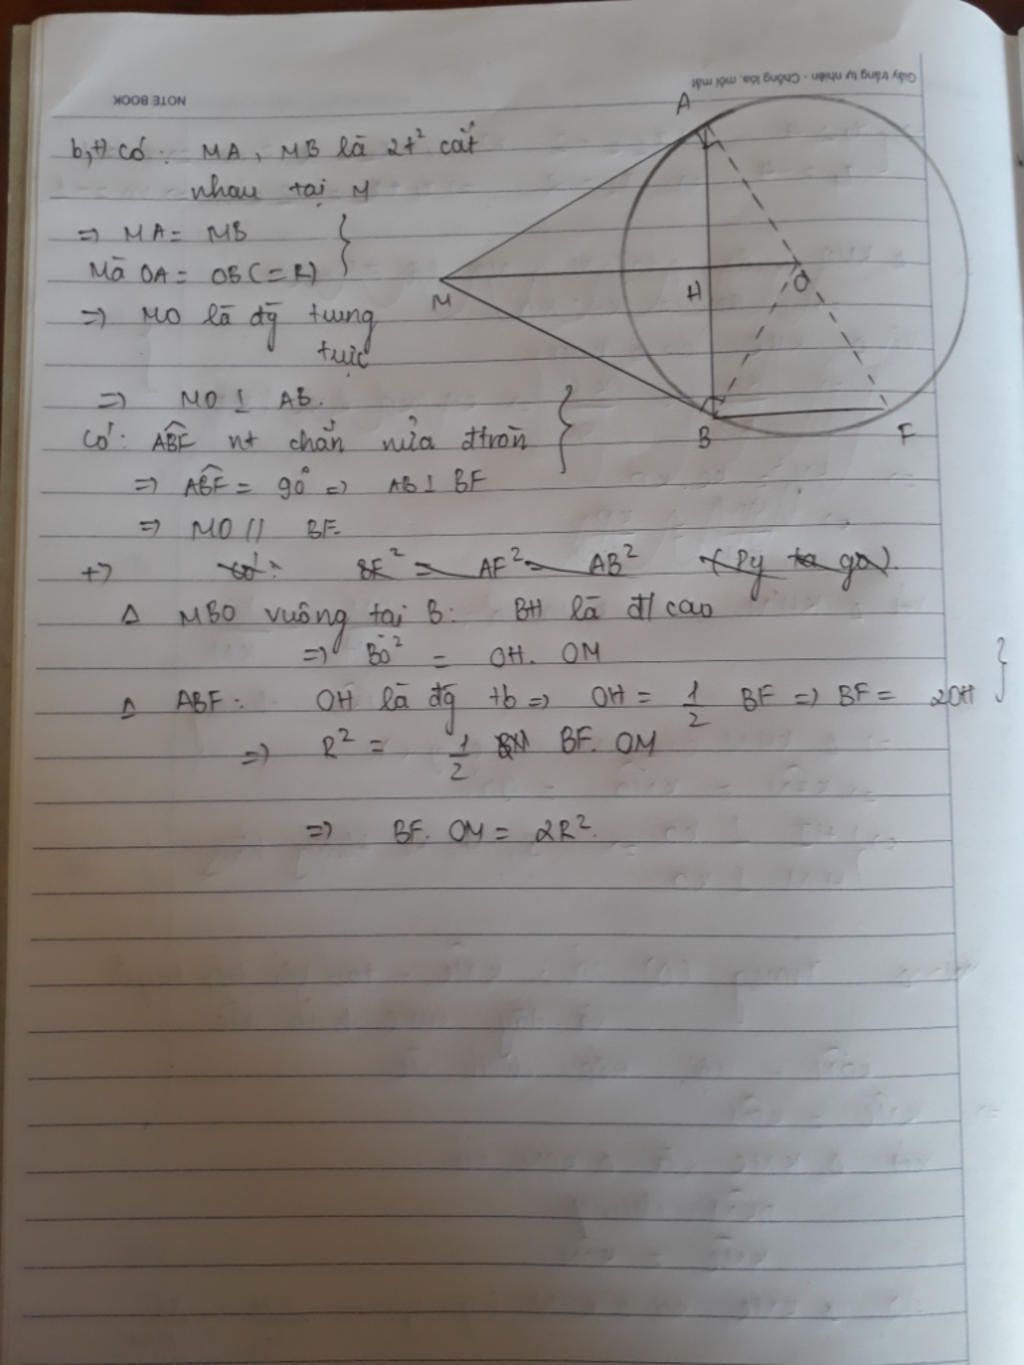 Giấy trắng tự nhiên - Chống lóa, mỏi mắt
NOTE BOOK
b, +) Có: MA, MB là 2t² cắt
nhau tại M
=> MA = MB
Mà OA = OB (= R)
=> MO là đg trung
trực
=> MO ⊥ AB.
Có: ABF nt chắn nửa đtròn
=> ABF = 90° => AB ⊥ BF
=> MO // BF.
+) Có: BF² = AF² - AB² (Py ta go).
Δ MBO vuông tại B: BH là đ/ cao
=> BO² = OH. OM
Δ ABF: OH là đg tb => OH = 1/2 BF => BF = 2OH
=> R² = 1/2 BF. OM
=> BF. OM = 2R².
A
M
H
O
B
F